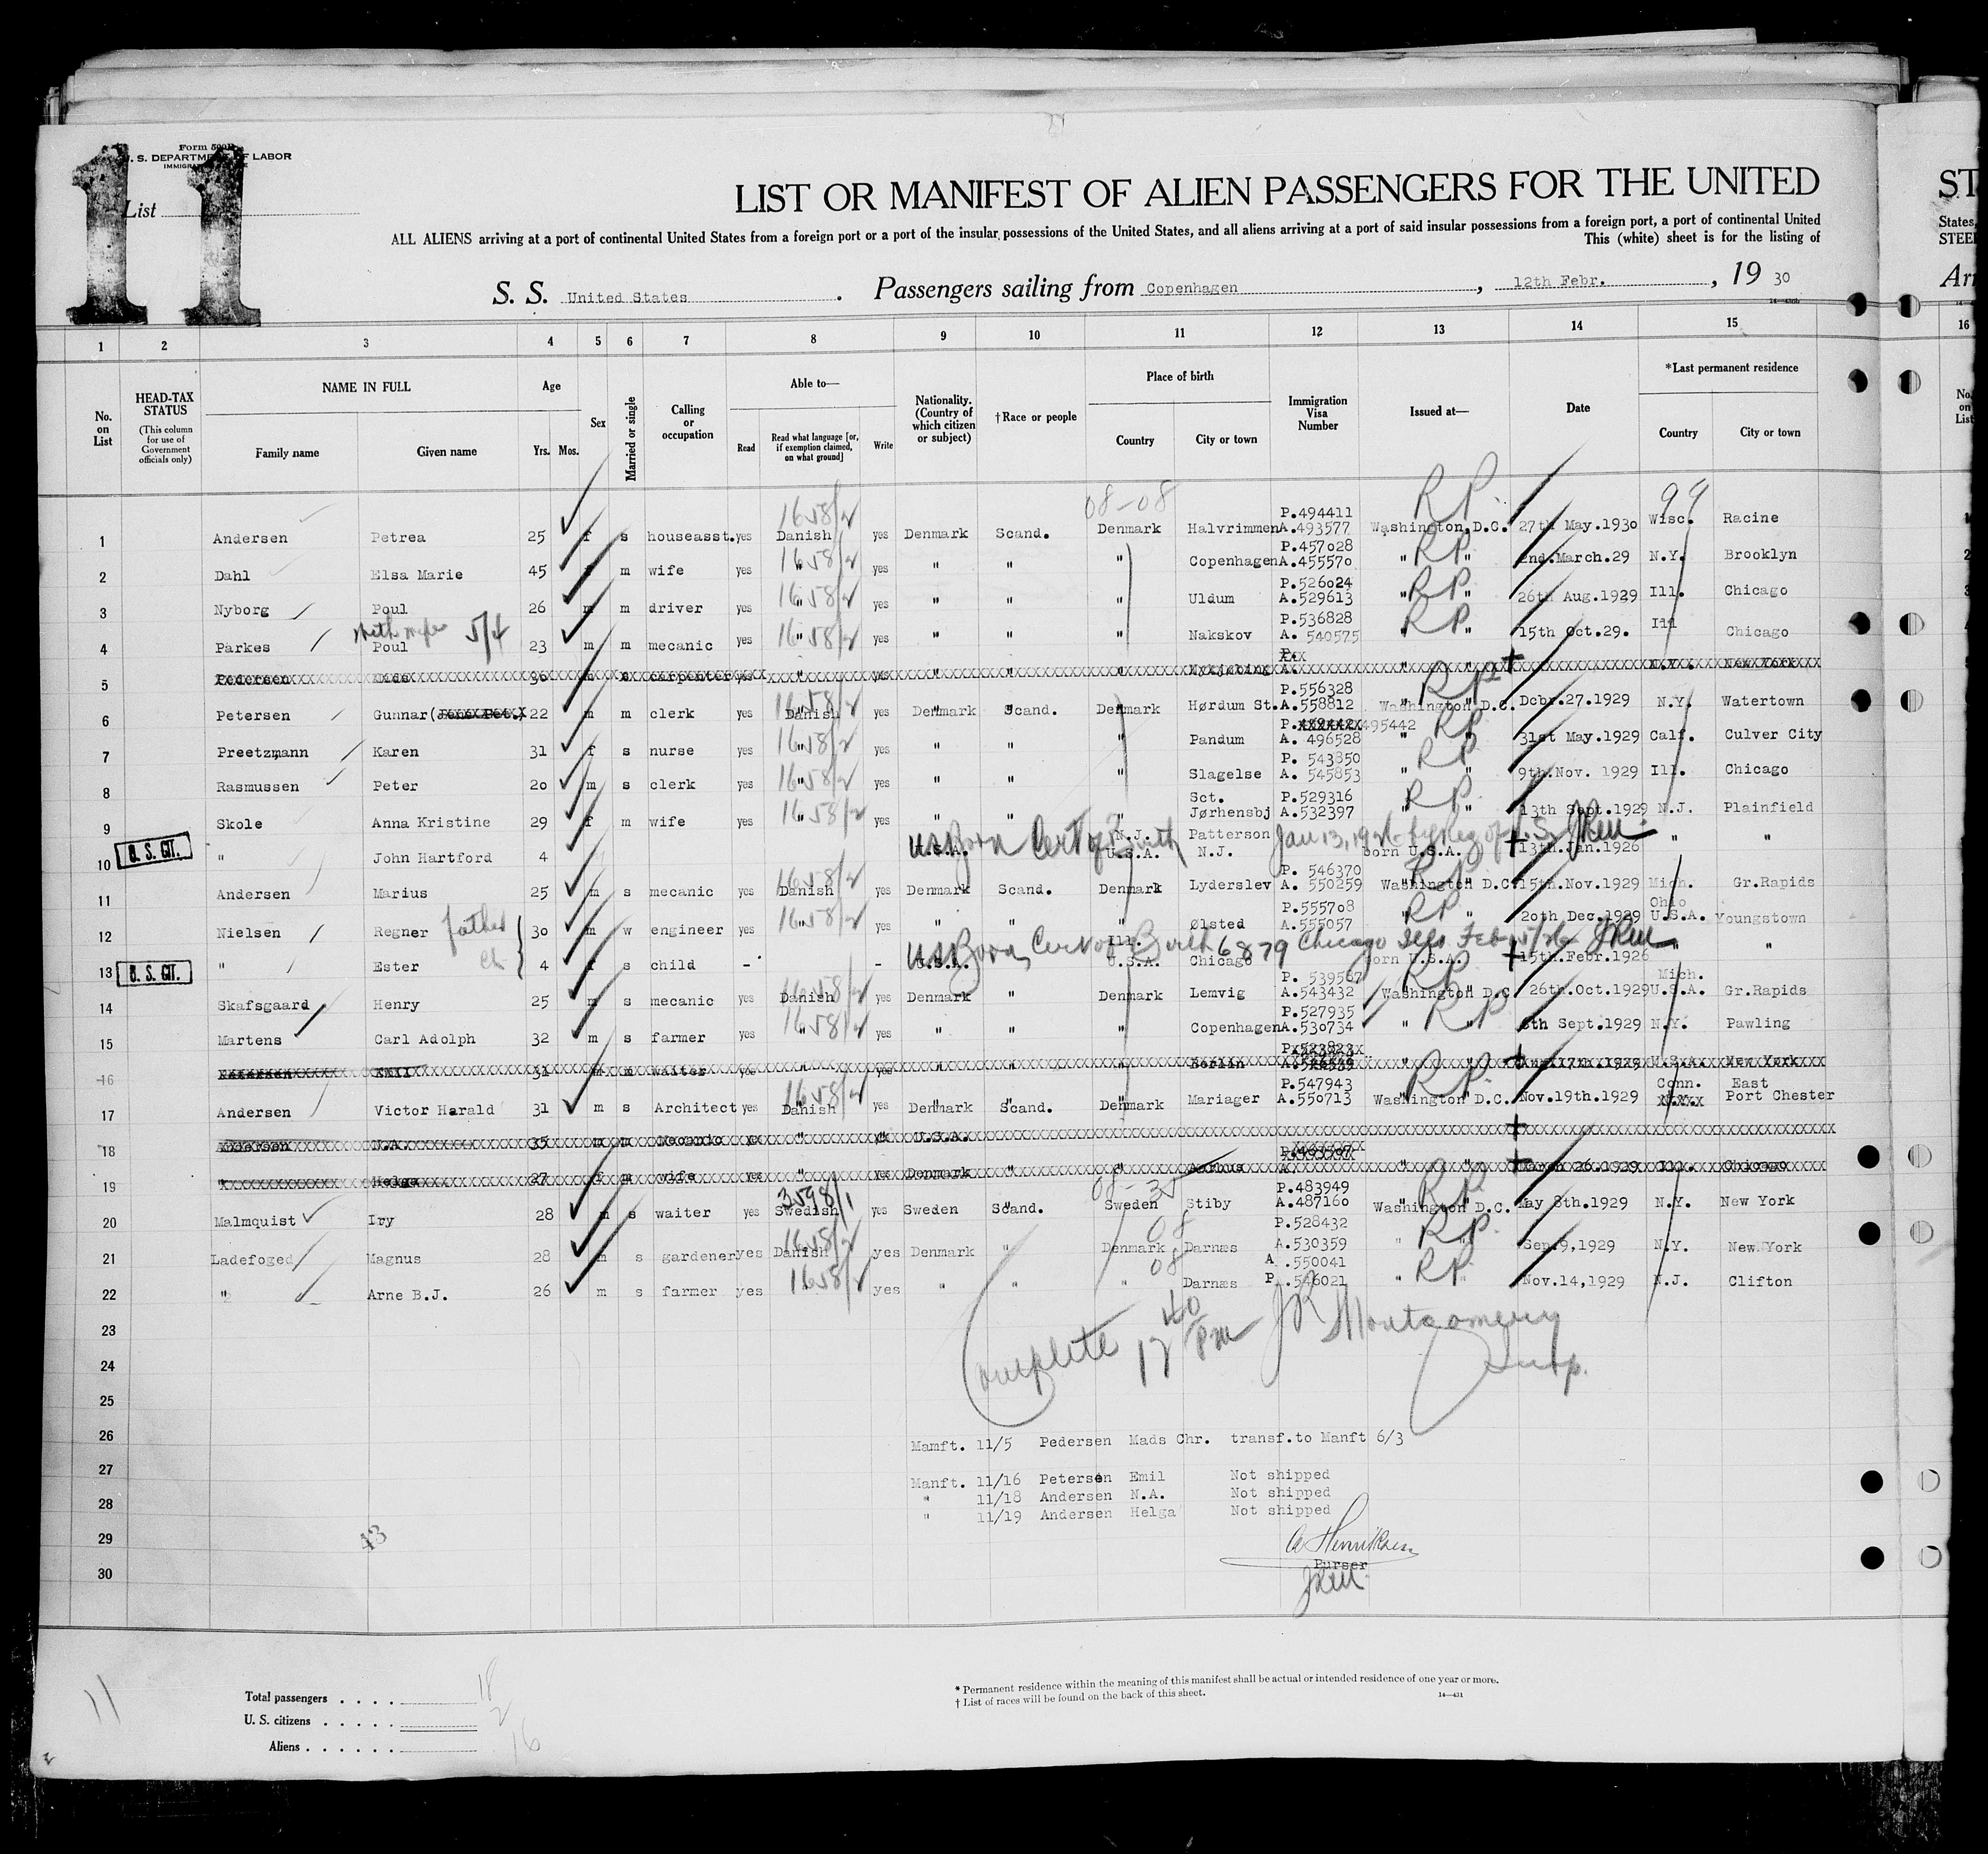 11
Form 500B
U. S. DEPARTMENT OF LABOR
IMMIGRATION SERVICE
List
LIST OR MANIFEST OF ALIEN PASSENGERS FOR THE UNITED
ST
ALL ALIENS arriving at a port of continental United States from a foreign port or a port of the insular possessions of the United States, and all aliens arriving at a port of said insular possessions from a foreign port, a port of continental United
States,
This (white) sheet is for the listing of
STEE
S. S. United States. Passengers sailing from Copenhagen, 12th Febr., 1930
Arr
1 2 3 4 5 6 7 8 9 10 11 12 13 14 15 16
No. on List
HEAD-TAX STATUS (This column for use of Government officials only)
NAME IN FULL Family name Given name
Age Yrs. Mos.
Sex
Married or single
Calling or occupation
Able to— Read Read what language [or, if exemption claimed, on what ground] Write
Nationality. (Country of which citizen or subject)
†Race or people
Place of birth Country City or town
Immigration Visa Number
Issued at—
Date
*Last permanent residence Country City or town
No. on List
08-08 RP 99
1 Andersen Petrea 25 f s houseasst. yes Danish 1658/2 yes Denmark Scand. Denmark Halvrimmen P.494411 A.493577 Washington,D.C. 27th May.1930 Wisc. Racine
2 Dahl Elsa Marie 45 f m wife yes " 1658/2 yes " " " Copenhagen P.457028 A.455570 " RP " 2nd.March.29 N.Y. Brooklyn
3 Nyborg Poul 26 m m driver yes " 1658/2 yes " " " Uldum P.526024 A.529613 " RP " 26th Aug.1929 Ill. Chicago
4 Parkes Poul 5/4 23 m m mecanic yes " 1658/2 yes " " " Nakskov P.536828 A. 540575 " RP " 15th Oct.29. Ill Chicago
5 Pedersen 30 m carpenter yes " yes " " " " " N.Y. New York
6 Petersen Gunnar 22 m m clerk yes Danish 1658/2 yes Denmark Scand. Denmark Hørdum St. P.556328 A.558812 Washington D.C. RP Debr.27.1929 N.Y. Watertown
7 Preetzmann Karen 31 f s nurse yes " 1658/2 yes " " " Pandum P. 495442 A. 496528 " RP " 31st May.1929 Calf. Culver City
8 Rasmussen Peter 20 m s clerk yes " 1658/2 yes " " " Slagelse P. 543850 A. 545853 " RP " 9th.Nov. 1929 Ill. Chicago
9 Skole Anna Kristine 29 f m wife yes " 1658/2 yes " " " Sct. Jørhensbj P.529316 A.532397 " RP " 13th Sept.1929 N.J. Plainfield
10 U. S. CIT. " John Hartford 4 U.S.A. US Born Cert of Birth N.J. U.S.A. Patterson N.J. born U.S.A. 13th.Jan.1926 " "
11 Andersen Marius 25 m s mecanic yes Danish 1658/2 yes Denmark Scand. Denmark Lyderslev P. 546370 A. 550259 Washington D.C. RP 15th.Nov.1929 Mich. Gr.Rapids
12 Nielsen Regner father 30 m w engineer yes " 1658/2 yes " " " Ølsted P.555708 A.555057 " RP " 20th Dec.1929 Ohio U.S.A. Youngstown
13 U. S. CIT. " Ester ch 4 f s child - - U.S.A. US Born, Cert of Birth 6879 Chicago Ills Feb Ill. U.S.A. Chicago born U.S.A. 15th.Febr.1926 " "
14 Skafsgaard Henry 25 m s mecanic yes Danish 1658/2 yes Denmark " Denmark Lemvig P. 539567 A.543432 Washington D.C RP 26th.Oct.1929 Mich. U.S.A. Gr.Rapids
15 Martens Carl Adolph 32 m s farmer yes " 1658/2 yes " " " Copenhagen P.527935 A.530734 " RP " 6th Sept.1929 N.Y. Pawling
16 Petersen Emil 31 m m waiter yes " yes " " " Berlin " " Aug.17th.1929 U.S.A. New York
17 Andersen Victor Harald 31 m s Architect yes Danish 1658/2 yes Denmark Scand. Denmark Mariager P.547943 A.550713 Washington D.C. RP Nov.19th.1929 Conn. East Port Chester
18 Andersen N.A. 35 m m Mecanic " " U.S.A.
19 " Helga 27 f m wife yes " yes Denmark " " Aarhus " " March 26.1929 Ill. Chicago
20 Malmquist Iry 28 m s waiter yes Swedish 3598/1 yes Sweden Scand. Sweden Stiby P.483949 A.487160 Washington D.C. RP May 8th.1929 N.Y. New York
21 Ladefoged Magnus 28 m s gardener yes Danish 1658/2 yes Denmark " 08 Denmark Darnæs P.528432 A.530359 " RP Sep.9,1929 N.Y. New York
22 " Arne B.J. 26 m s farmer yes 1658/2 yes " " 08 " Darnæs A .550041 P .546021 " RP " Nov.14,1929 N.J. Clifton
23
Complete 12 40 PM JR Montgomery
24
Insp.
25
26 Mamft. 11/5 Pedersen Mads Chr. transf.to Manft 6/3
27 Manft. 11/16 Petersen Emil Not shipped
28 " 11/18 Andersen N.A. Not shipped
" 11/19 Andersen Helga Not shipped
29 43
A Henriksen
30 Purser
JRM
11
Total passengers . . . . 18
U. S. citizens . . . . . 2
Aliens . . . . . . 16
* Permanent residence within the meaning of this manifest shall be actual or intended residence of one year or more.
† List of races will be found on the back of this sheet.
14—431